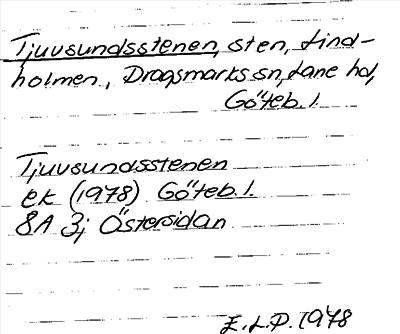 Tjuvsundsstenen, sten, Lind-
holmen, Dragsmarks sn, Lane hd,
Göteb. l.
Tjuvsundsstenen
ek (1978) Göteb. l.
8A 3j Östersidan
E.L.P. 1978